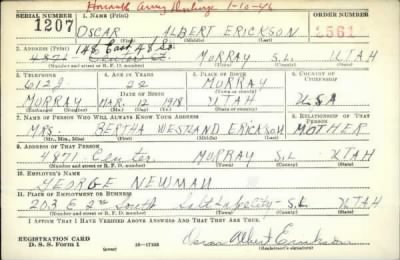 Honorable Army Discharge 1-10-46
SERIAL NUMBER 1. NAME (Print) ORDER NUMBER
1207 OSCAR ALBERT ERICKSON 1561
(First) (Middle) (Last)
148 East 48 So.
2. ADDRESS (Print)
4871 MURRAY S.L. UTAH
(Number and street or R. F. D. number) (Town) (County) (State)
3. TELEPHONE 4. AGE IN YEARS 5. PLACE OF BIRTH 6. COUNTRY OF CITIZENSHIP
612J 22 MURRAY
DATE OF BIRTH (Town or county)
MURRAY MAR. 12 1918 UTAH USA
(Exchange) (Number) (Mo.) (Day) (Yr.) (State or country)
7. NAME OF PERSON WHO WILL ALWAYS KNOW YOUR ADDRESS 8. RELATIONSHIP OF THAT PERSON
MRS. BERTHA WESTLAND ERICKSON MOTHER
(Mr., Mrs., Miss) (First) (Middle) (Last)
9. ADDRESS OF THAT PERSON
4871 Center MURRAY S.L UTAH
(Number and street or R. F. D. number) (Town) (County) (State)
10. EMPLOYER'S NAME
GEORGE NEWMAN
11. PLACE OF EMPLOYMENT OR BUSINESS
203 E 2nd South Salt Lake City - S.L UTAH
(Number and street or R. F. D. number) (Town) (County) (State)
I AFFIRM THAT I HAVE VERIFIED ABOVE ANSWERS AND THAT THEY ARE TRUE.
REGISTRATION CARD
D. S. S. Form 1 16-17105 Oscar Albert Erickson
(Registrant's signature)